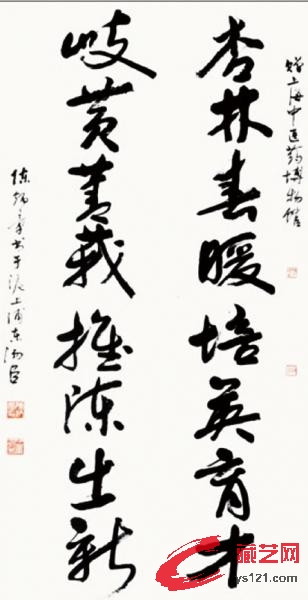 赠上海中医药博物馆
杏林春暖培英育才
岐黄菁莪推陈出新
陈炳书于沪上浦东
藏艺网
ys121.com